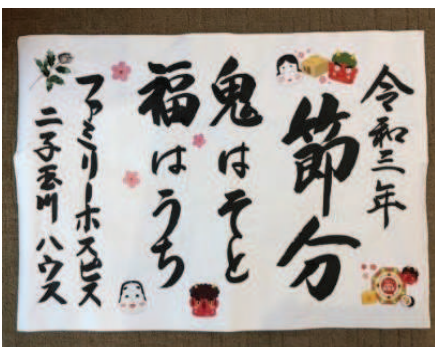 令和三年
節分
鬼はそと
福はうち
ファミリーホスピス
二子玉川 ハウス